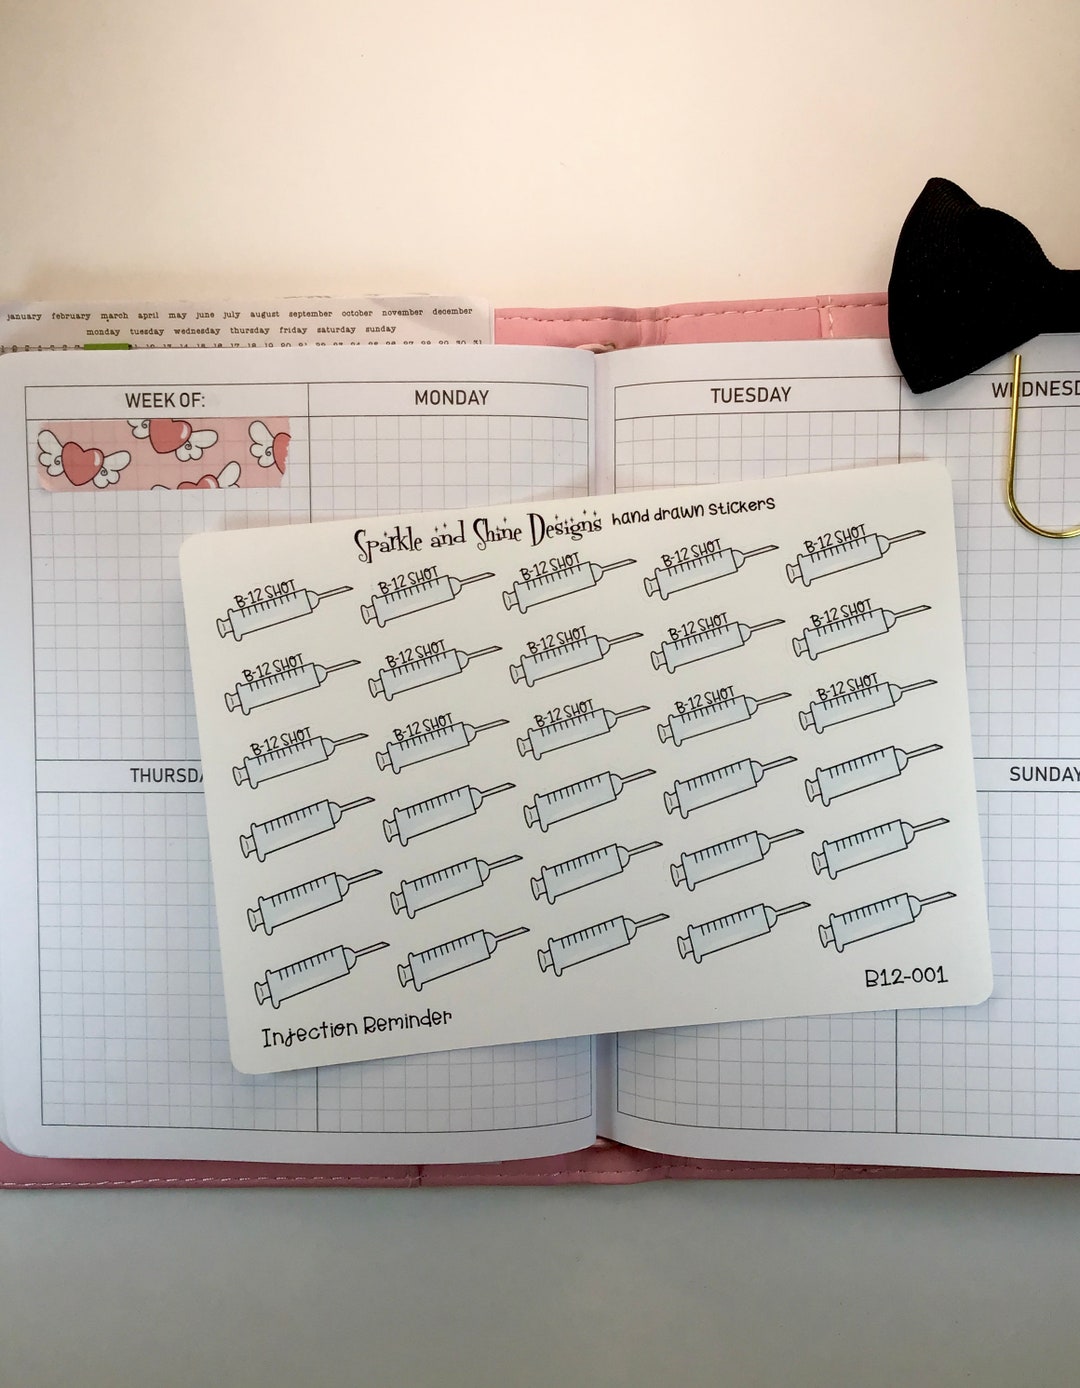 january february march april may june july august september october november december
monday tuesday wednesday thursday friday saturday sunday
WEEK OF: MONDAY TUESDAY
Sparkle and Shine Designs hand drawn stickers
B-12 SHOT B-12 SHOT B-12 SHOT B-12 SHOT B-12 SHOT
B-12 SHOT B-12 SHOT B-12 SHOT B-12 SHOT B-12 SHOT
B-12 SHOT B-12 SHOT B-12 SHOT B-12 SHOT B-12 SHOT
THURSDA SUNDAY
Injection Reminder B12-001